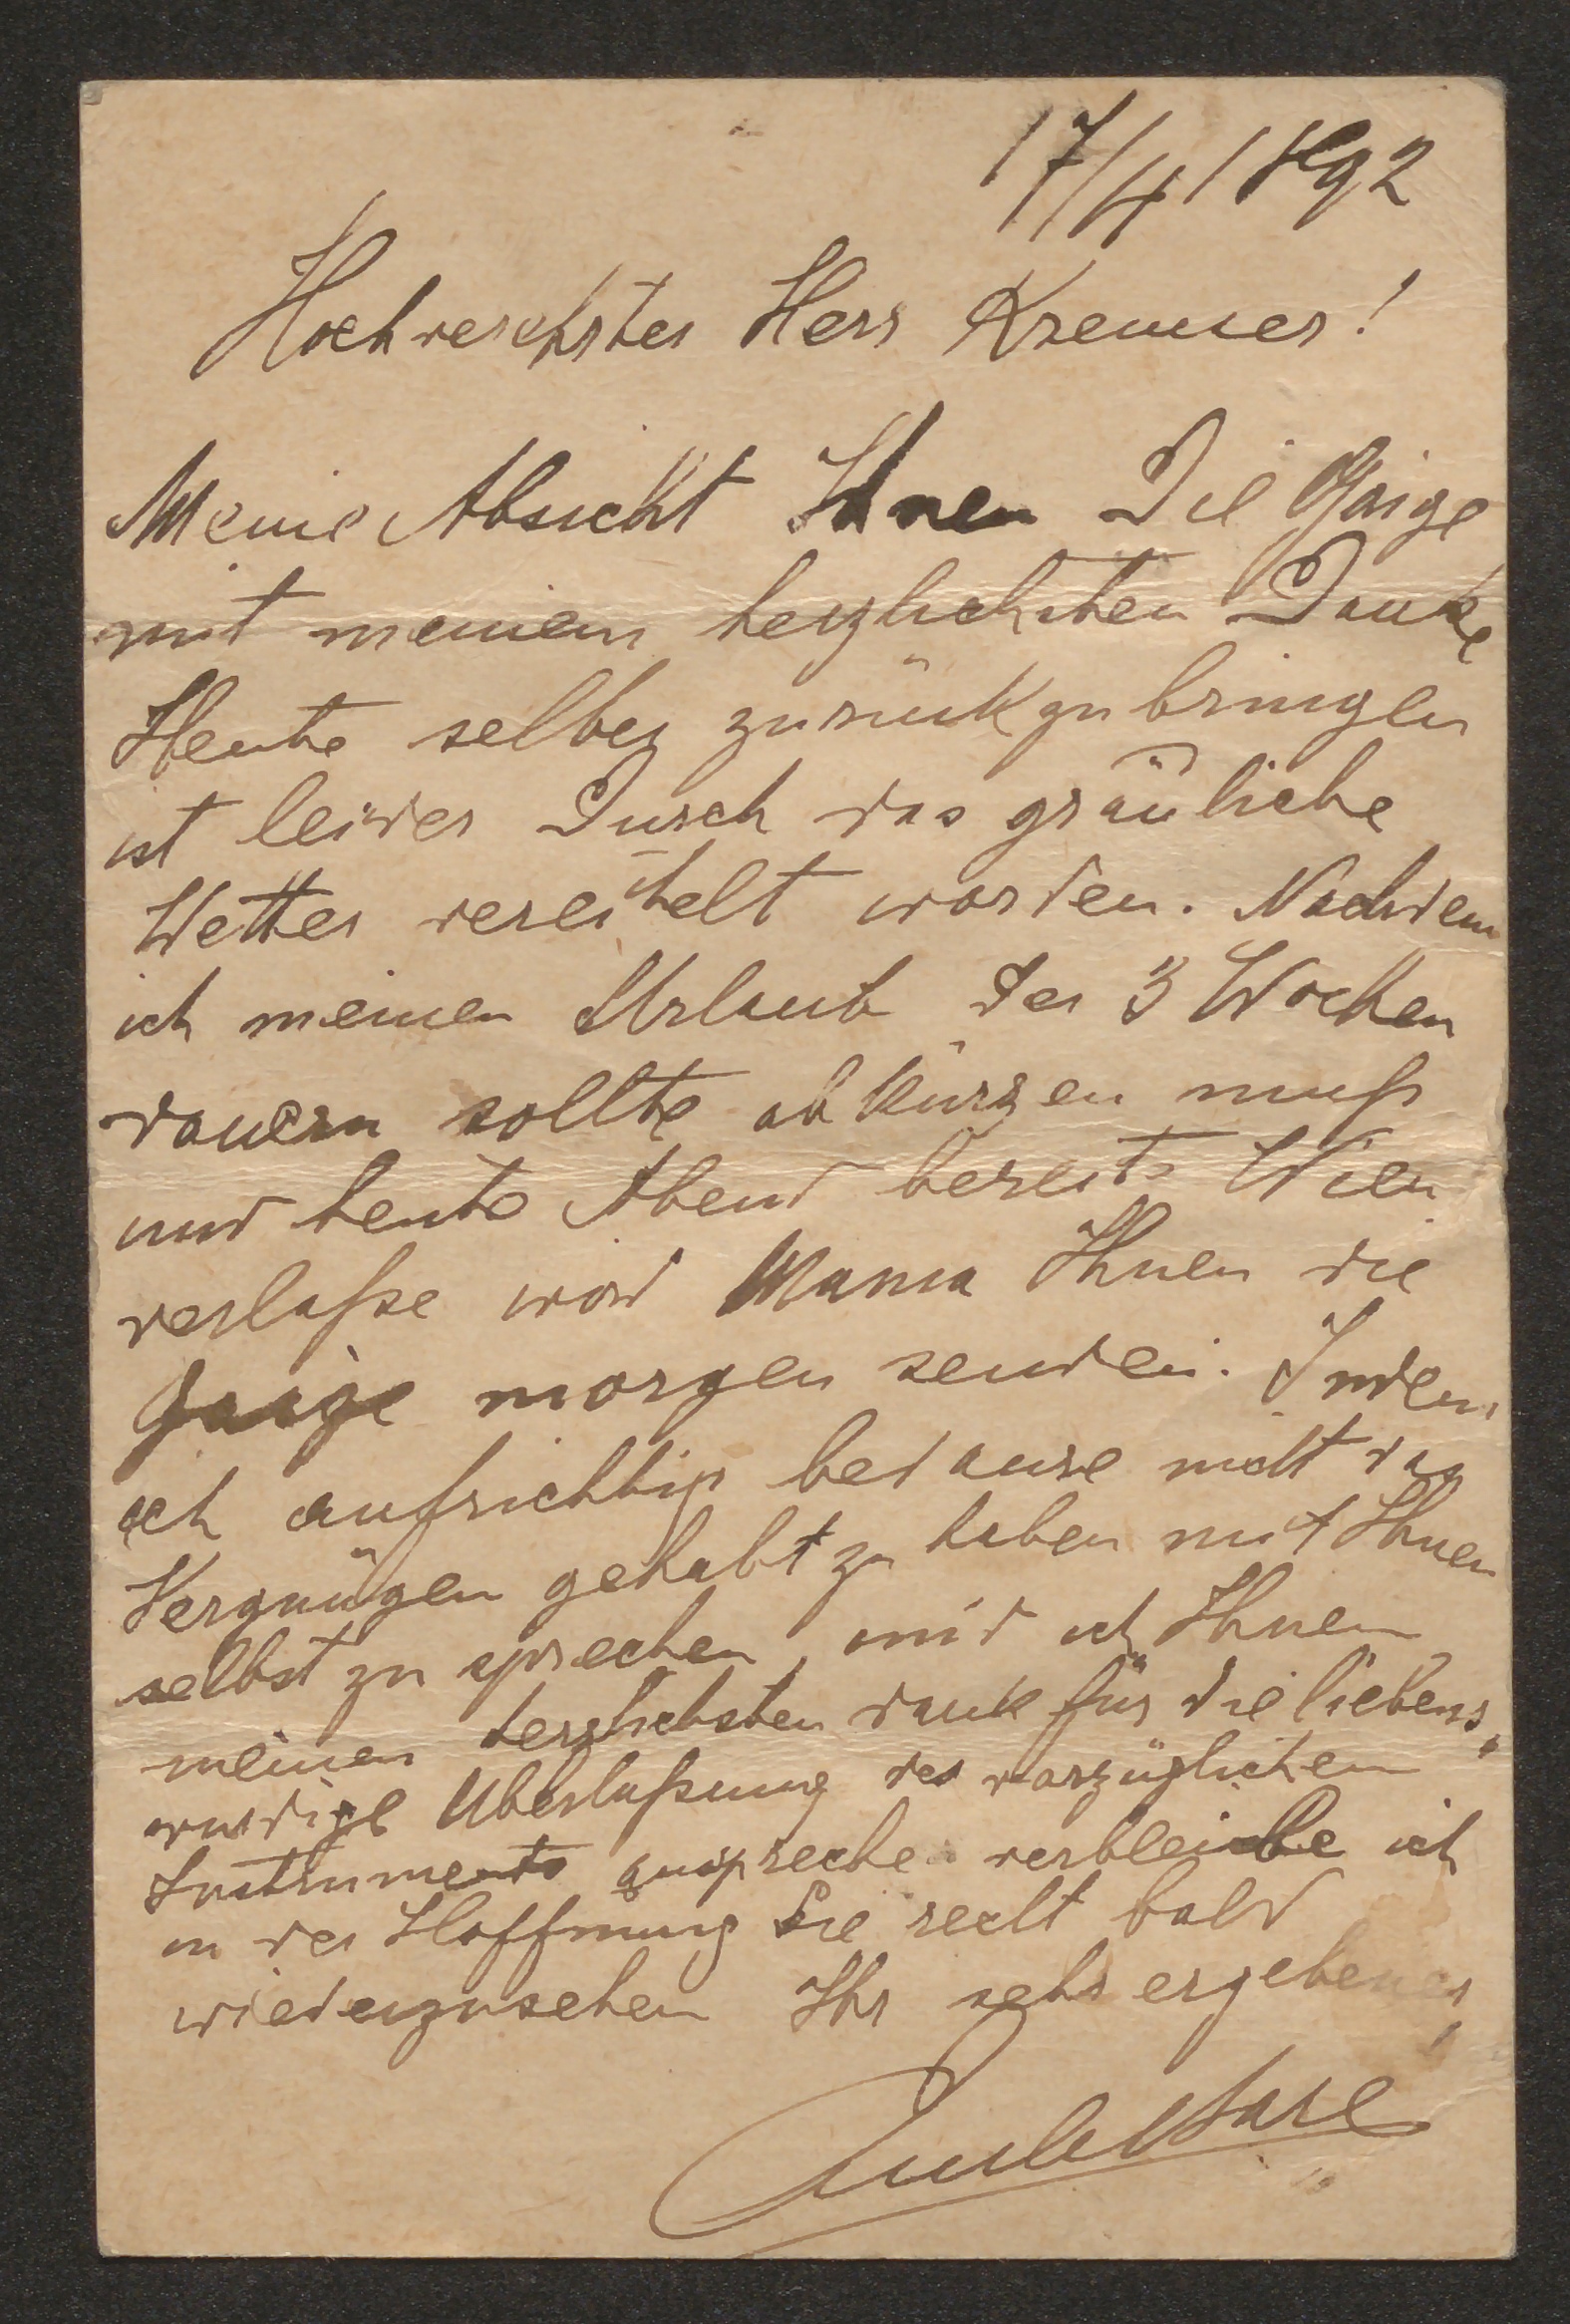 17/4 1892
Hochverehrter Herr Kremser!
Meine Absicht Ihnen Die Gaige
mit meinem herzlichsten Danke
Heute selber zurückzubringen
ist leider Durch das gräuliche
Wetter vereitelt worden. Nachdem
ich meinen Urlaub der 3 Wochen
dauern sollte abkürzen muß
und heute Abend bereits Wien
verlaße wird Mama Ihnen die
Gaige morgen senden. Indem
ich aufrichtig bedaure nicht das
Vergnügen gehabt zu haben mit Ihnen
selbst zu sprechen, und ich Ihnen
meinen herzlichsten dank für die liebens„
wurdige Uberlaßung des vorzüglichen
Instruments ausspreche verbleibe ich
in der Hoffnung Sie recht bald
wiederzusehen Ihr sehr ergebener